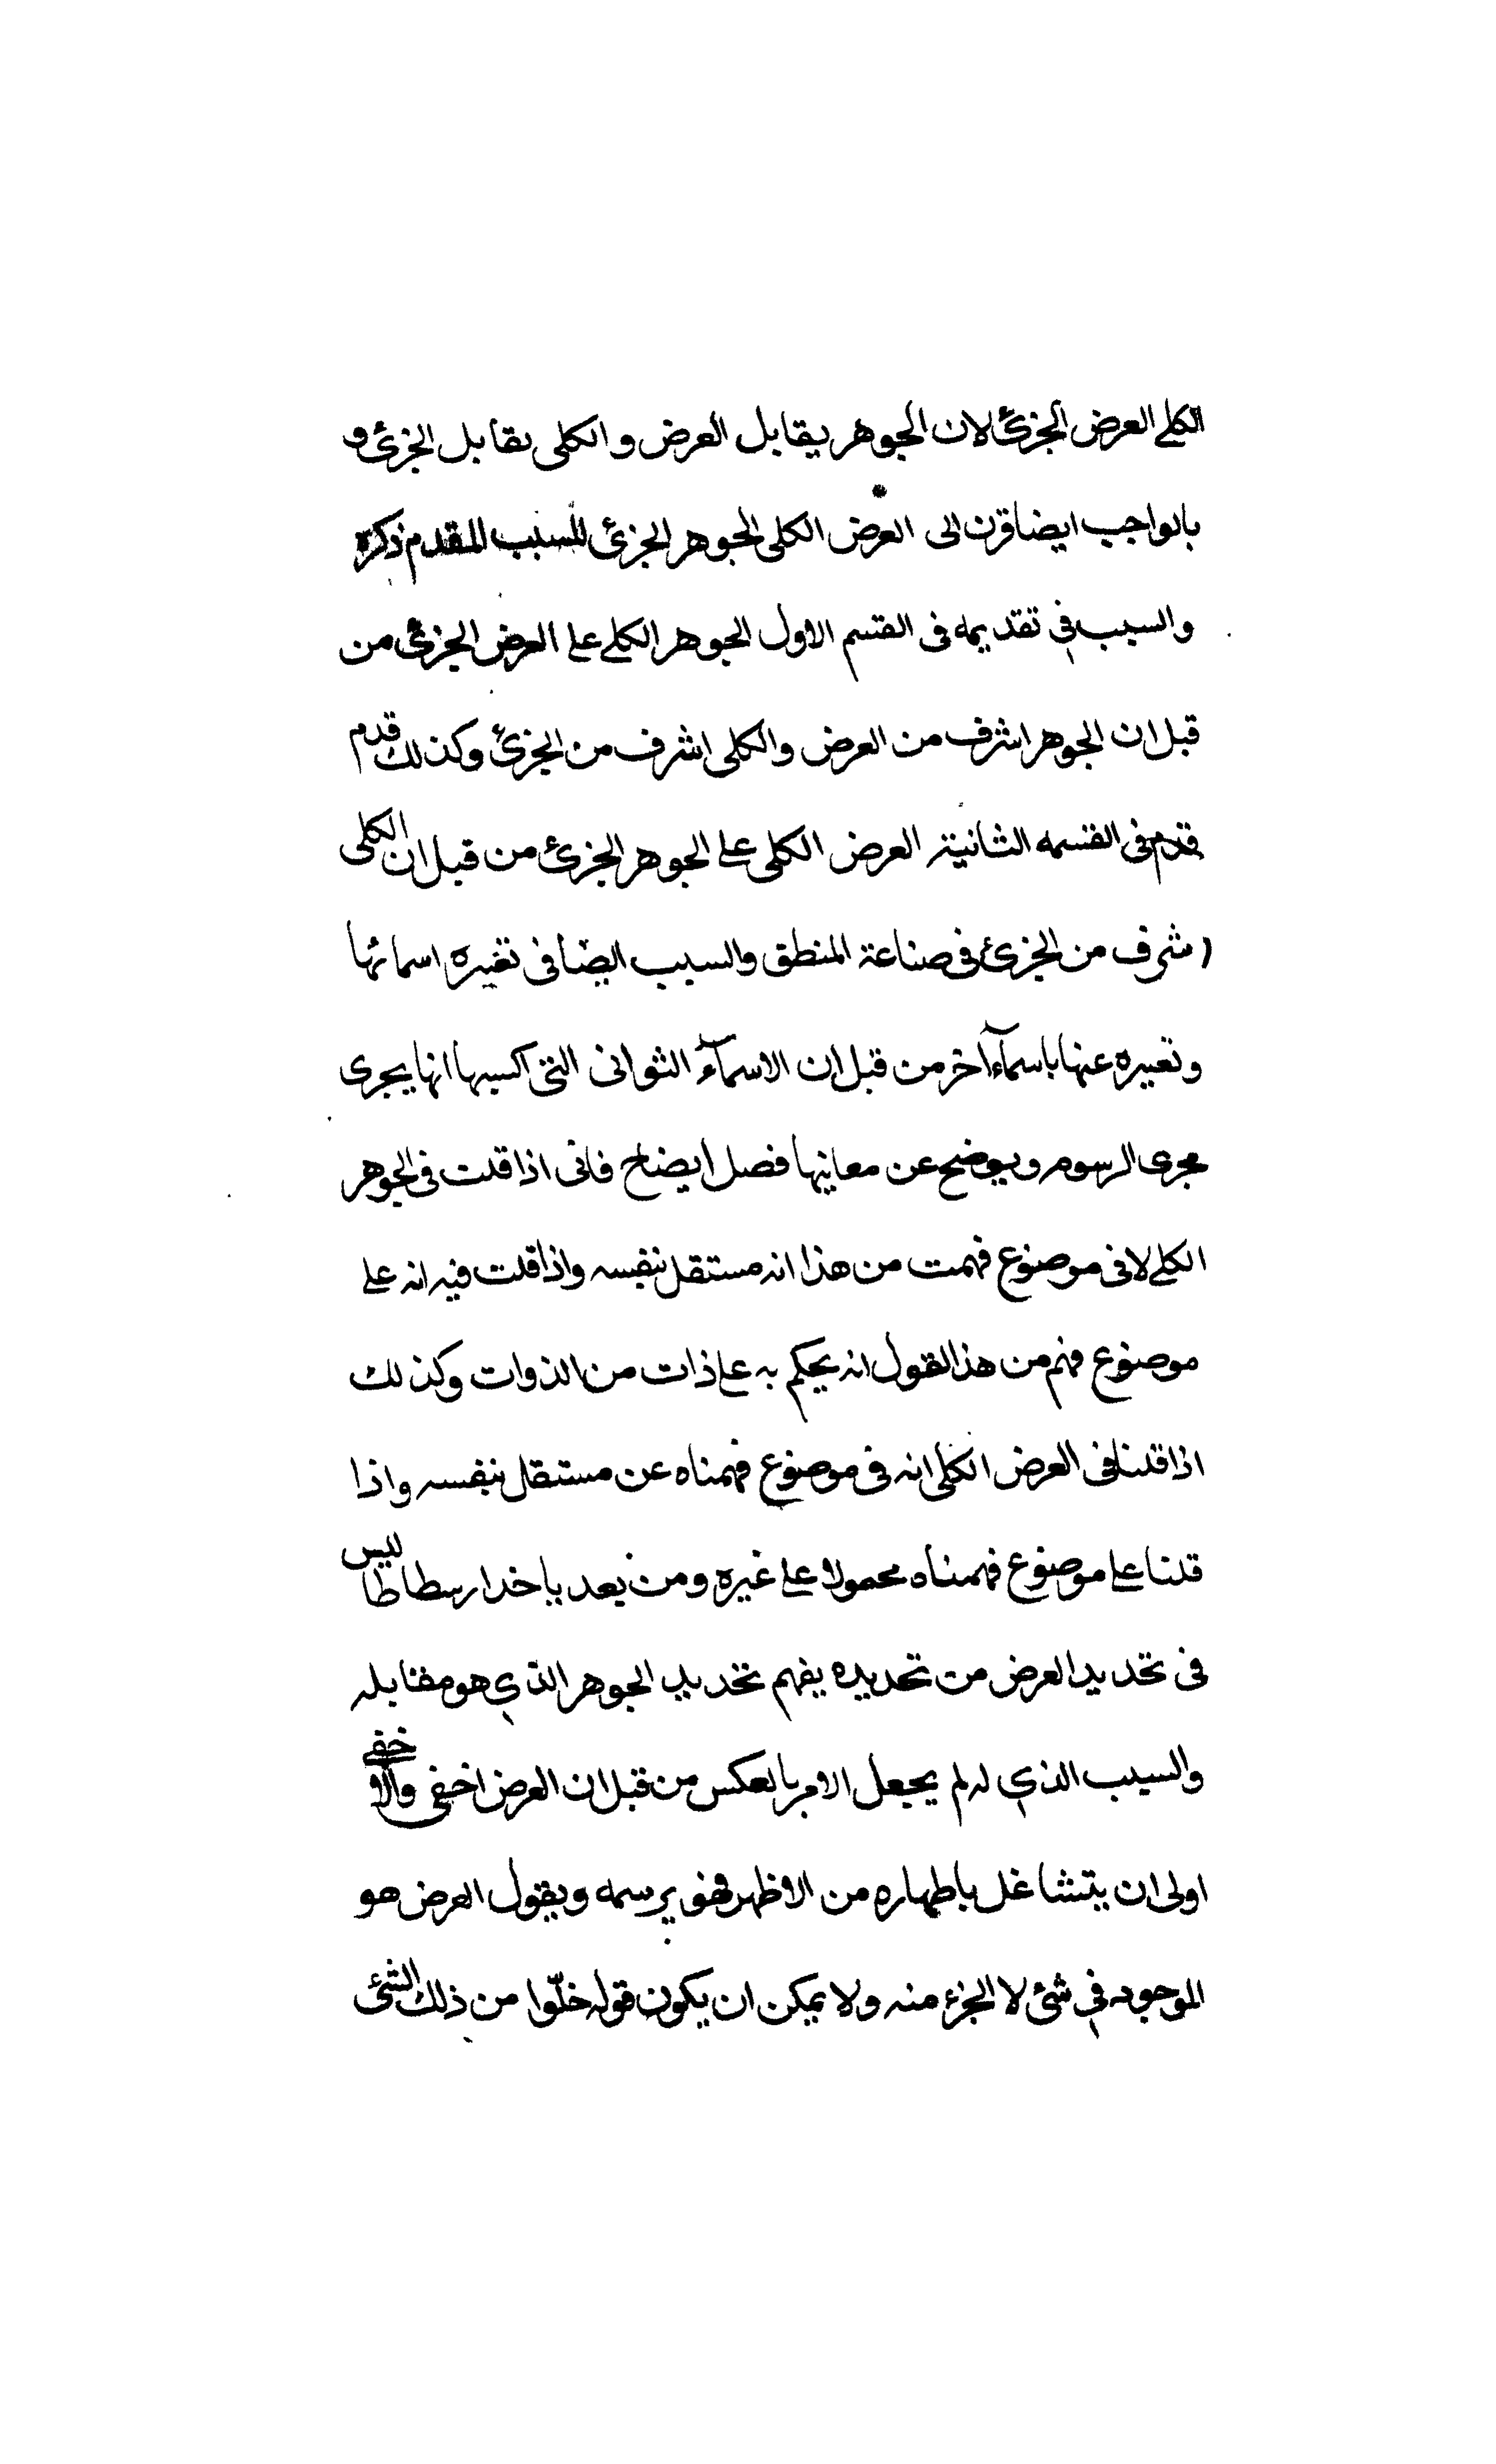 الكلي العرض الجزئ لان الجوهر يقابل العرض والكلى يقابل الجزئ و
بالواجب ايضا قرن الى العرض الكلى الجوهر الجزئ للسبب المقدم ذكره
والسبب في تقديمه فى القسم الاول الجوهر الكلي على العرض الجزئ من
قبل ان الجوهر اشرف من العرض والكلى اشرف من الجزئ وكذلك قدم
قدم فى القسمه الثانية العرض الكلى على الجوهر الجزئ من قبل ان الكلى
اشرف من الجزئ فى صناعة المنطق والسبب ايضا فى تغيره اسمائها
وتعبيره عنها باسماء آخر من قبل ان الاسمآء الثوانى التى اكسبها انها يجرى
مجرى الرسوم ويوضح عن معانيها فضل ايضاح فانى اذا قلت فى الجوهر
الكلي لا فى موضوع فهمت من هذا انه مستقل بنفسه واذا قلت فيه انه على
موضوع فهم من هذا القول انه يحكم به على ذات من الذوات وكذلك
اذا قلنا فى العرض الكلى انه فى موضوع فهمناه عن مستقل بنفسه واذا
قلنا على موضوع فهمناه محمولا على غيره ومن بعد ياخذ ارسطاطاليس
فى تحديد العرض من تحديده يفهم تحديد الجوهر الذي هو مقابله
والسبب الذي له لم يجعل الامر بالعكس من قبل ان العرض اخفى والاخفى
اولى ان يتشاغل باظهاره من الاظهر فهو يرسمه ويقول العرض هو
الموجود في شئ لا الجزء منه ولا يمكن ان يكون قوله خلّوا من ذلك الشئ